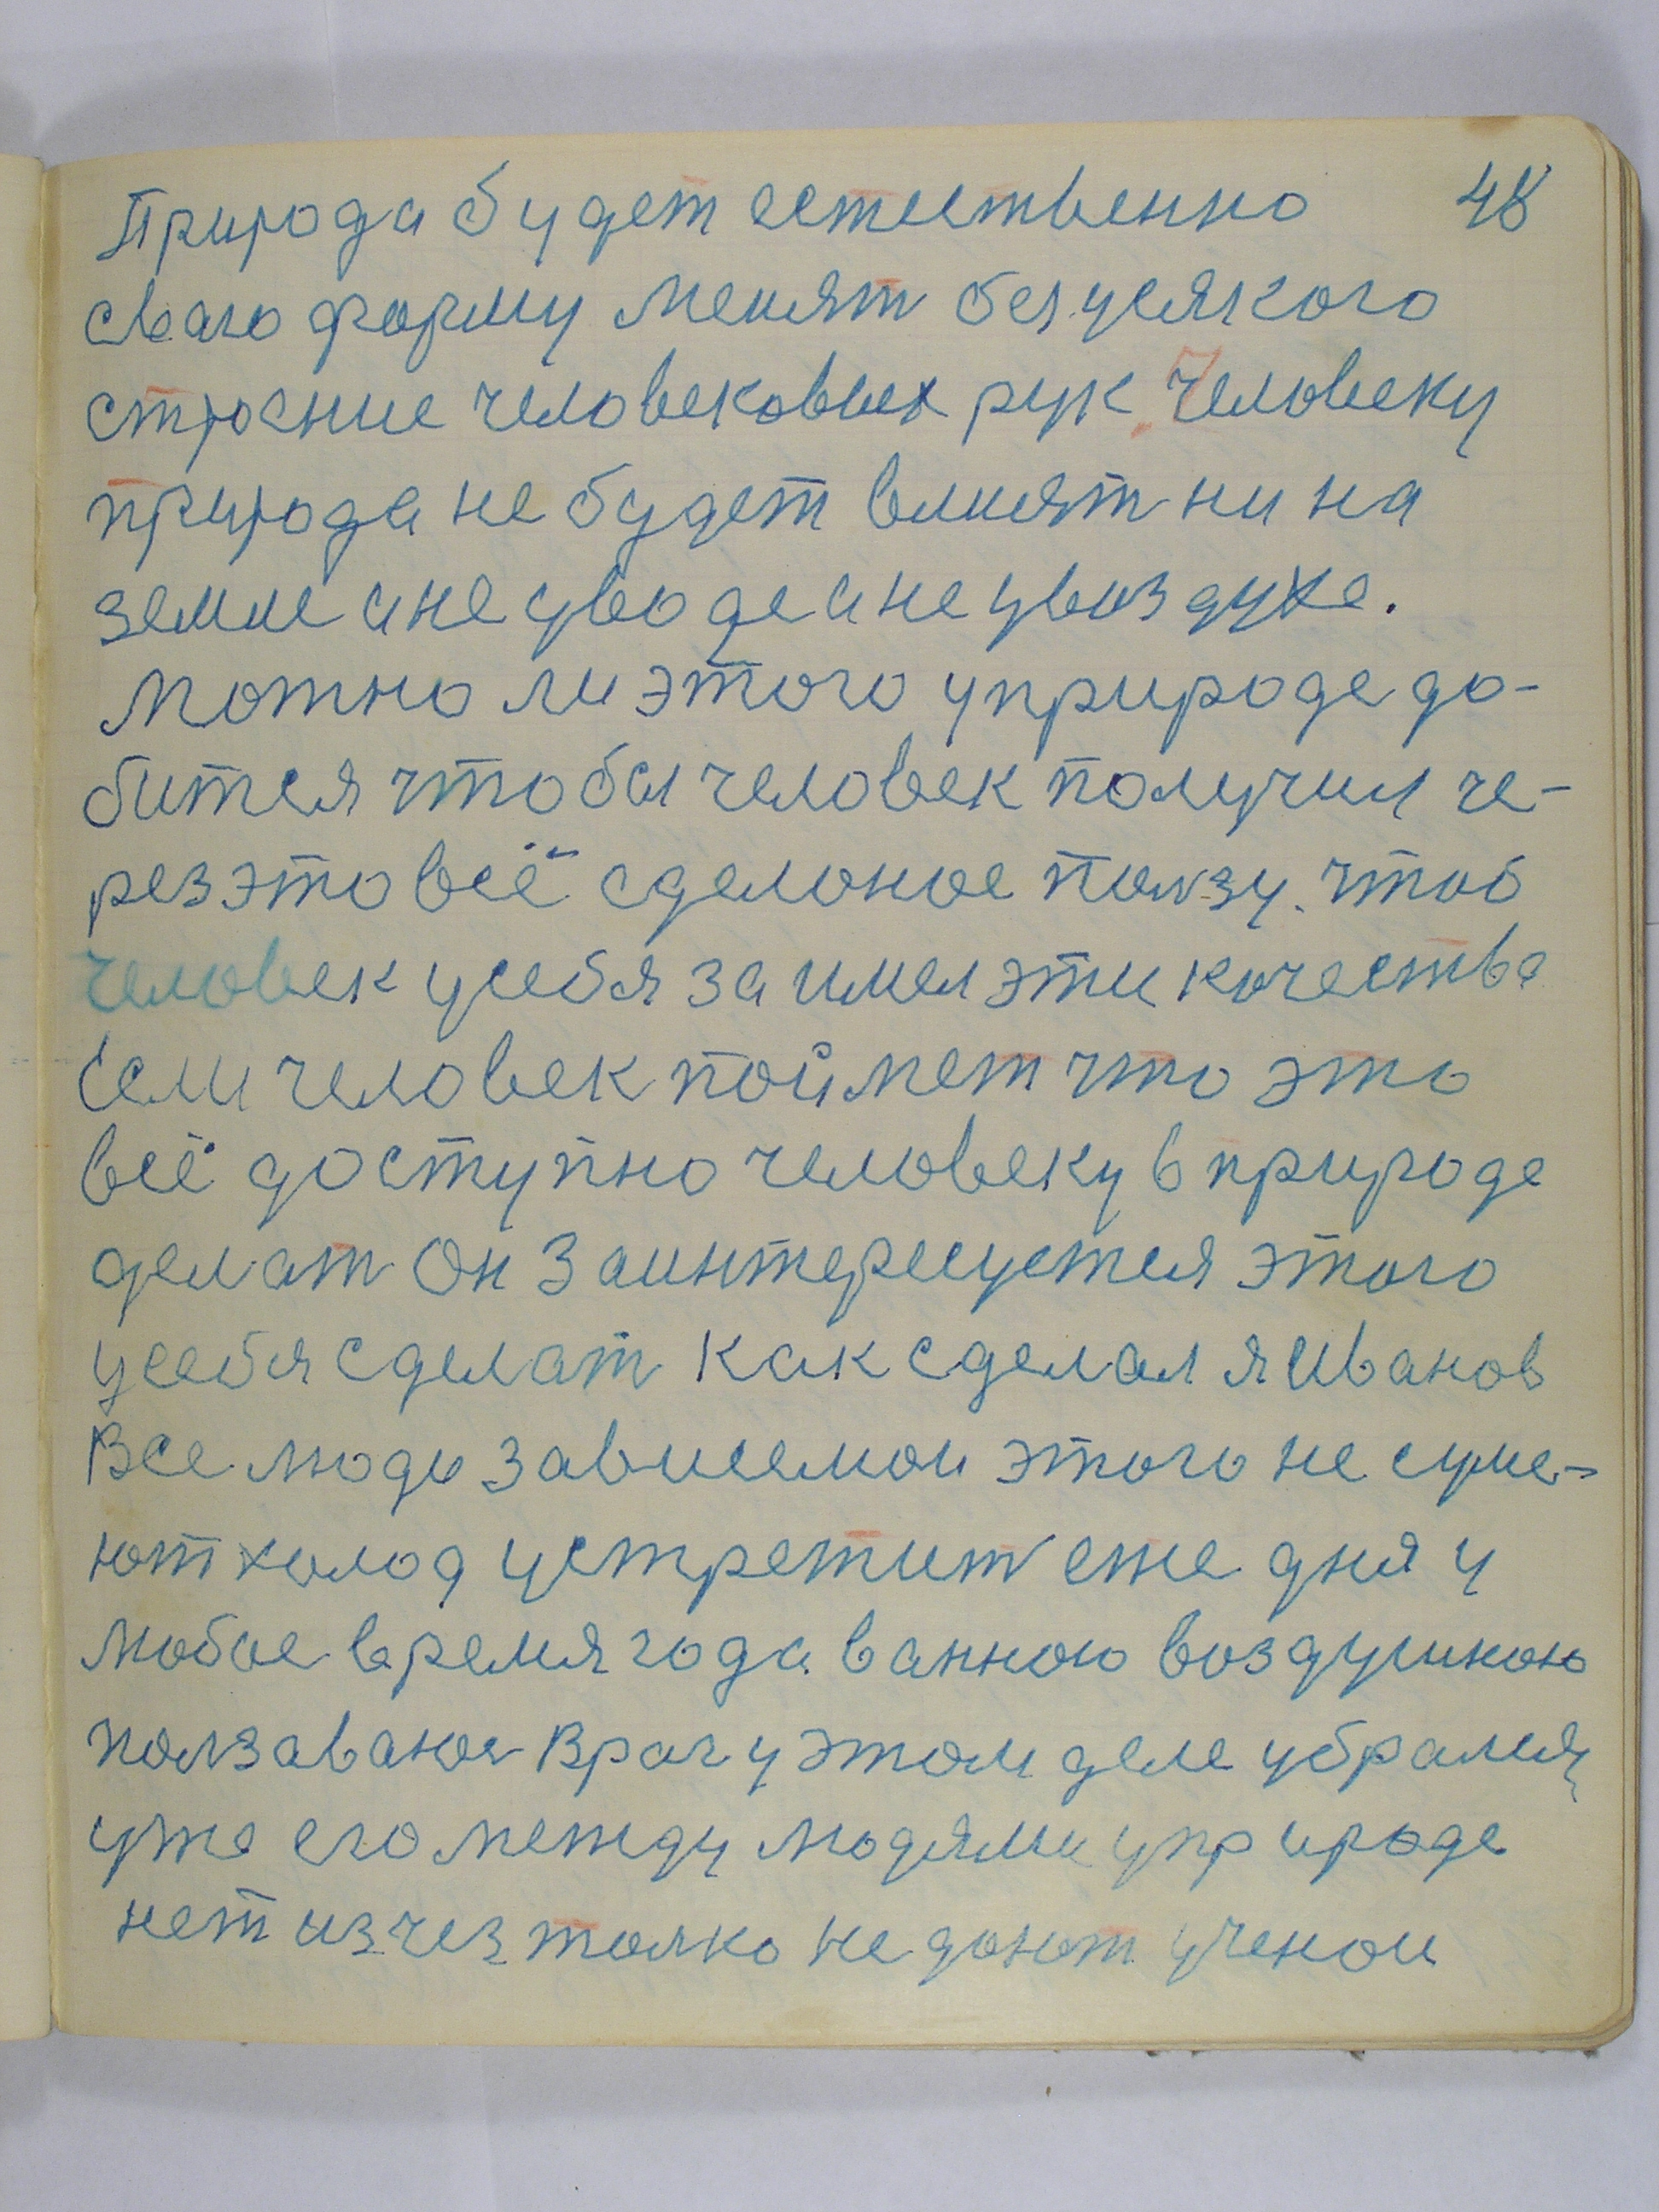 Природа будет естественно 48
сваго форму менят без усякого
строение человековых рук. Человеку
природа не будет влият ни на
земле а не уводе а не увоздухе.
Можно ли этого уприроде до-
битея чтобы человек получил че-
рез это всё сделоное ползу. чтоб
человек усебя заимел эти качества
Если человек поймет что это
всё доступно человеку в природе
делат Он заинтересуется этого
усебя сделат как сделал я Иванов
Все люды зависемои этого не суме-
ют холод устретит еже дня у
любое время года ванною воздушною
ползаваное Враг у этом деле убрался,
уже его между людями уприроде
нет изчез толко не доют ученои